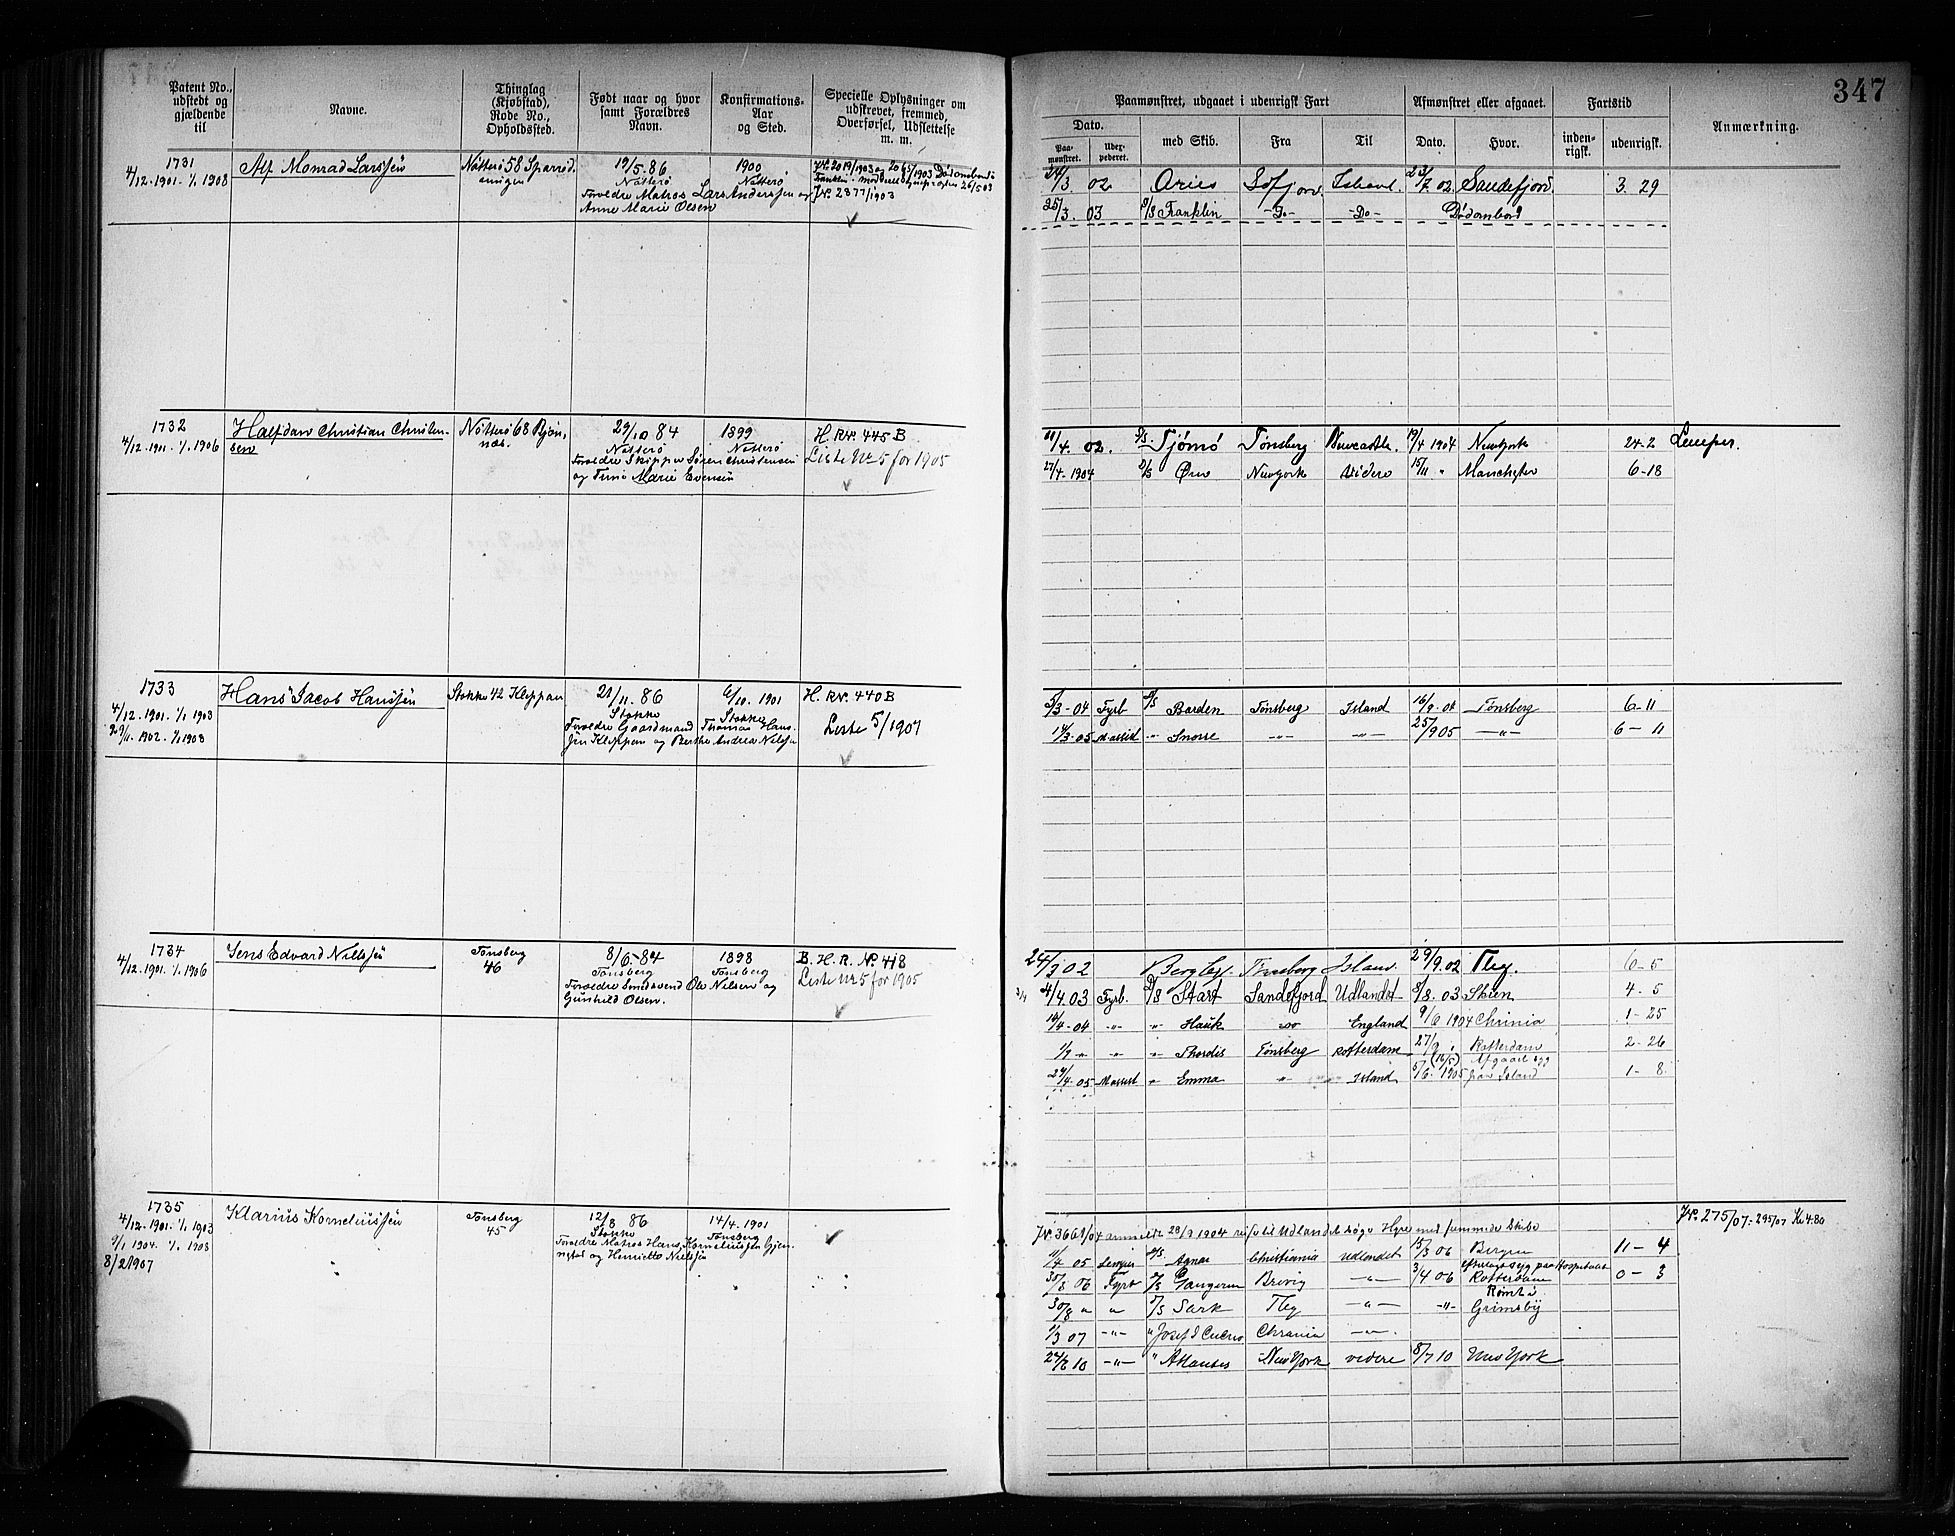 347
Patent No., udstedt og gjældende til
Navne.
Thinglag (Kjøbstad), Rode No., Opholdssted.
Født naar og hvor samt Forældres Navn.
Konfirmations-Aar og Sted.
Specielle Oplysninger om udskrevet, fremmed, Overførsel, Udslettelse m. m.
Paamønstret, udgaaet i udenrigsk Fart
Afmønstret eller afgaaet.
Fartstid
Anmærkning.
Dato.
Paa-mønstret.
Udex-pederet.
med Skib.
Fra
Til
Dato.
Hvor.
inden-rigsk.
udenrigsk.
1731
4/12.1901. 1/1 1908
Alf Monrad Larssen
Nøtterø 58
19/5. 86
Nøtterø
Forældre Matros Lars Anderssen og
Anne Marie Olsen
1900
Nøtterø
Jr. 2377/1903
24/3 02 Aries Tofjord Island. 23/7 02 Sandefjord 3. 29
25/3. 03 S/S Franklin -Do- -Do- Dødombord
1732
4/12.1901. 1/1 1906
Halfdan Christian Christensen
Nøtterø 68 Bjønnæs.
29/10 84
Nøtterø
Forældre Skipper Søren Christensen
og Marie Evensen
1899
Nøtterø
H. RN. 445 B
Liste Nr 5 for 1905
11/4. 02. S/S. Tjømø Tønsberg Newcastle 19/4 1904 Newyork 24-2 Lemper.
27/4-1904 S/S Ørn Newyork videre 15/11 " Manchester 6-18
1733
4/12.1901. 1/1 1903
29/11. 1902. 1/1 1908
Hans Jacob Hanssen
Stokke 42 Kleppan
21/11. 86
Stokke
Forældre Gaardmand Thomas Hanssen Kleppen og Berthe Andrea Nilsen
6/10. 1901
Stokke
H. RN. 440 B
Liste 5/1907
5/3-04 Fyrb S/S Barden Tønsberg Island 16/9-04 Tønsberg 6-11
14/3-05 -"- Snorre -"- -"- 25/9 05 -"- 6-11
1734
4/12.1901. 1/1 1906
Jens Edvard Nilssen
Tønsberg
46
8/6-84
Tønsberg
Forældre Smedsvend Ole Nilsen og
Gunhild Olsen.
1898
Tønsberg
B. H. R. No. 418
Liste Nr 5 for 1905
24/3 02 Tønsberg Island. 29/9.02 Tbg. 6-5
4/4.03 Fyrb. S/S Start Sandefjord Udlandet 8/8. 03 Skien 4. 5
14/4-04 -"- " Hauk England 9/6 1904 Chrinia 1-25
1/7 " -"- " Thordis Tønsberg Rotterdam 27/9 " Rotterdam 2-26
29/4-05 " Emma " Island 5/6. 1905 (16/5) Afgaaet syg fra Island 1-8
1735
4/12.1901. 1/1 1903
9/1 1904. 1/1 1908
8/2 1907
Klarius Korneliussen
Tønsberg
45
12/8 86
Stokke
Forældre Matros Hans Korneliussen
og Henriette Nielsen
14/4. 1901
Tønsberg
Jr. 3661/04 anmeldt 28/9 1904 reise til Udlandet søge Hyre med fremmede Skibe
Jr. 275/07-29 5/07 Kr 4.80
11/4 05 Lemper S/S Agnar Christiania Udlandet 15/3 06 Bergen 11-4
30/3 06 Fyrb S/S Brevig -"- 3/4 06 Rotterdam 0-3
30/8 " " S/S Sark Tbg -"- -"- Grimsby
1/3 07 -"- " Chrania -"-
24/6 10 -"- " Atlantis New York videre 8/7 10 New York